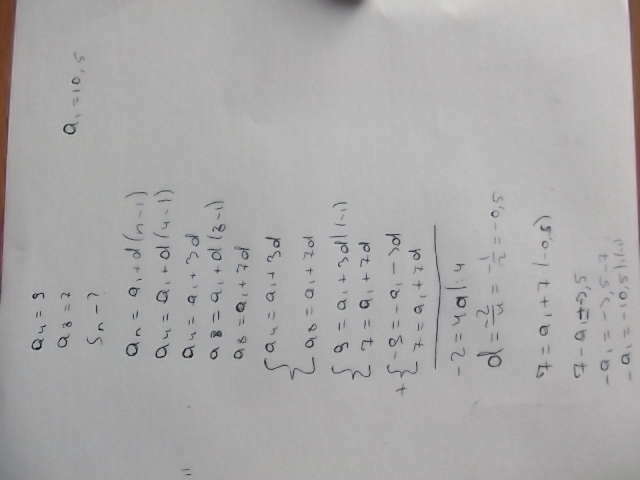 a₄ = 9
a₈ = 7
Sₙ - ?
aₙ = a₁ + d(n-1)
a₄ = a₁ + d(4-1)
a₄ = a₁ + 3d
a₈ = a₁ + d(8-1)
a₈ = a₁ + 7d
{ a₄ = a₁ + 3d
a₈ = a₁ + 7d
{ 9 = a₁ + 3d |(-1)
7 = a₁ + 7d
+ { -9 = -a₁ - 3d
7 = a₁ + 7d
-2 = 4d |:4
d = -2/4 = -1/2 = -0,5
7 = a₁ + 7(-0,5)
7 = a₁ - 3,5
-a₁ = -3,5 - 7
-a₁ = -10,5 |(-1)
a₁ = 10,5